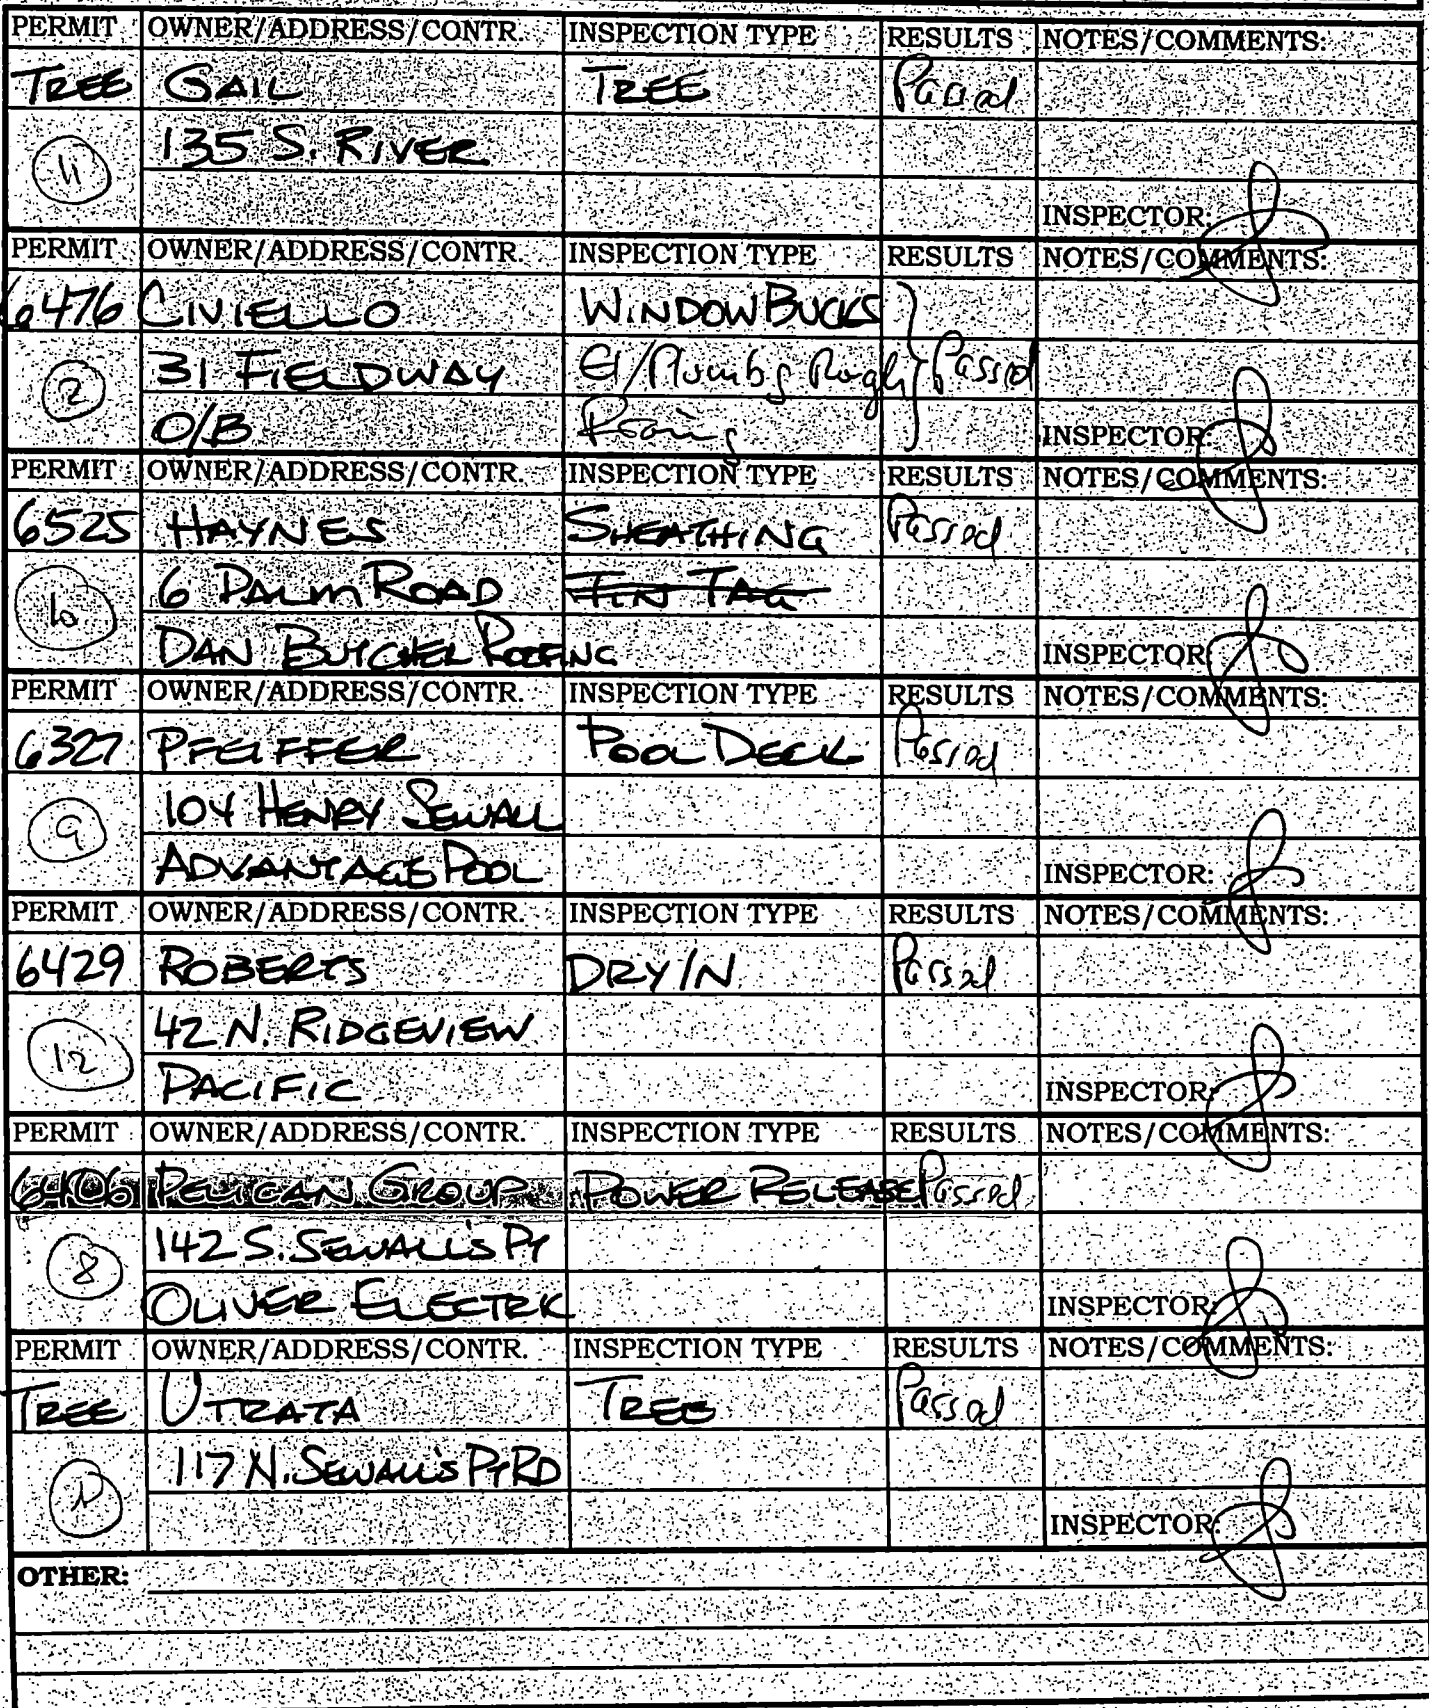 PERMIT OWNER/ADDRESS/CONTR. INSPECTION TYPE RESULTS NOTES/COMMENTS:
TREE GAIL TREE Passed
135 S. RIVER
11
INSPECTOR:
PERMIT OWNER/ADDRESS/CONTR. INSPECTION TYPE RESULTS NOTES/COMMENTS:
6476 CIVIELLO WINDOW BUCKS
2 31 FIELDWAY El/Plumbg Rough Passed
O/B INSPECTOR:
PERMIT OWNER/ADDRESS/CONTR. INSPECTION TYPE RESULTS NOTES/COMMENTS:
6525 HAYNES SHEATHING Passed
6 PALM ROAD TIN TAG
DAN BUTCHEL ROOFING INSPECTOR:
PERMIT OWNER/ADDRESS/CONTR. INSPECTION TYPE RESULTS NOTES/COMMENTS:
6327 PFEIFFER POOL DECK Passed
104 HENRY SEWALL
9
ADVANTAGE POOL INSPECTOR:
PERMIT OWNER/ADDRESS/CONTR. INSPECTION TYPE RESULTS NOTES/COMMENTS:
6429 ROBERTS DRY IN Passed
42 N. RIDGEVIEW
12
PACIFIC INSPECTOR:
PERMIT OWNER/ADDRESS/CONTR. INSPECTION TYPE RESULTS NOTES/COMMENTS:
6406 PELICAN GROUP POWER RELEASE Passed
142 S. SEWALL'S PT
8
OLIVER ELECTRIC INSPECTOR:
PERMIT OWNER/ADDRESS/CONTR. INSPECTION TYPE RESULTS NOTES/COMMENTS:
TREE UTRATA TREE Passed
117 N. SEWALL'S PT RD
INSPECTOR:
OTHER: